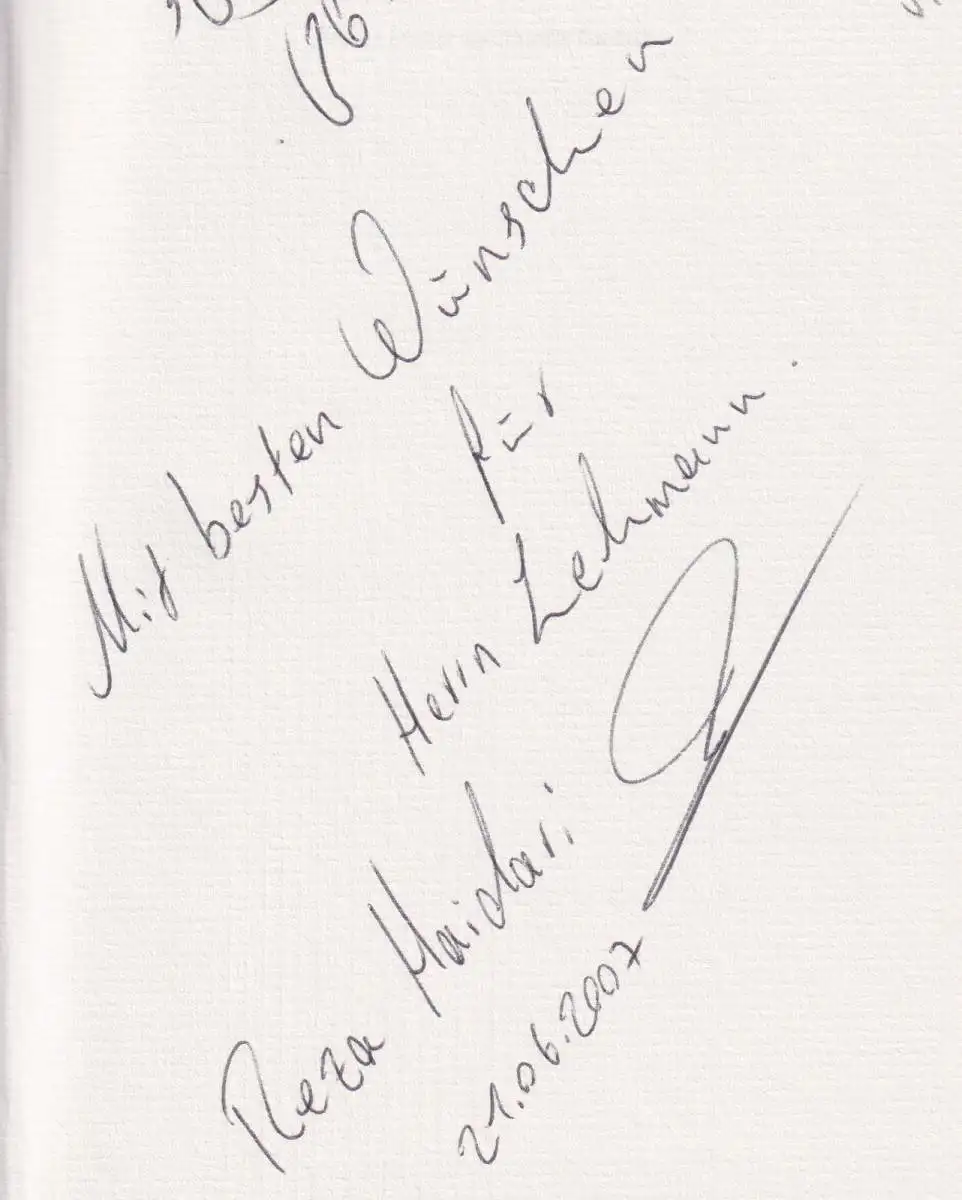 Mit besten Wünschen
für
Herrn Lehmann.
Reza Haidari
21.06.2007